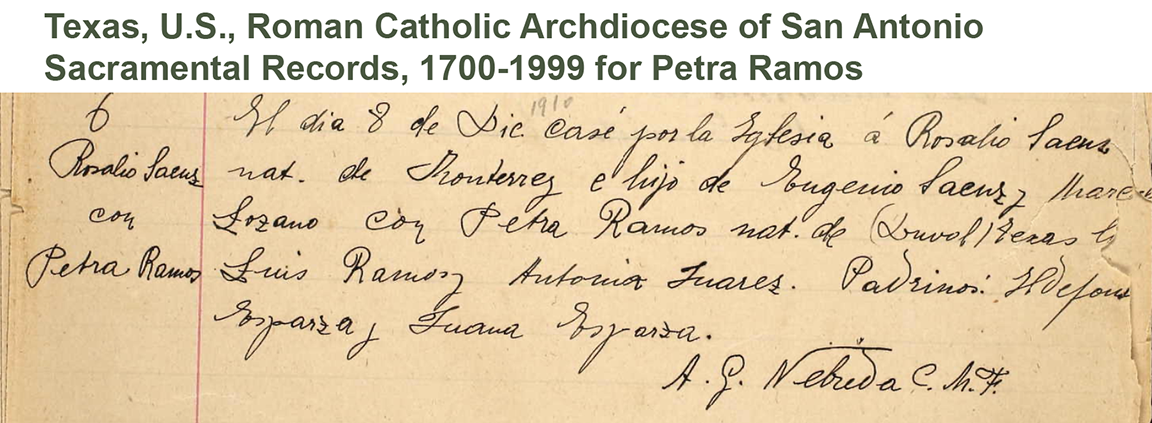 Texas, U.S., Roman Catholic Archdiocese of San Antonio
Sacramental Records, 1700-1999 for Petra Ramos
6
Rosalio Saenz
con
Petra Ramos
1910
El dia 8 de Dic. casé por la Iglesia á Rosalio Saenz
nat. de Monterrey e hijo de Eugenio Saenz y
Lozano con Petra Ramos nat. de (Duval) Texas
Luis Ramos y Antonia Juarez. Padrinos:
Esparza y Juana Esparza.
A. G. Nebreda C. M. F.